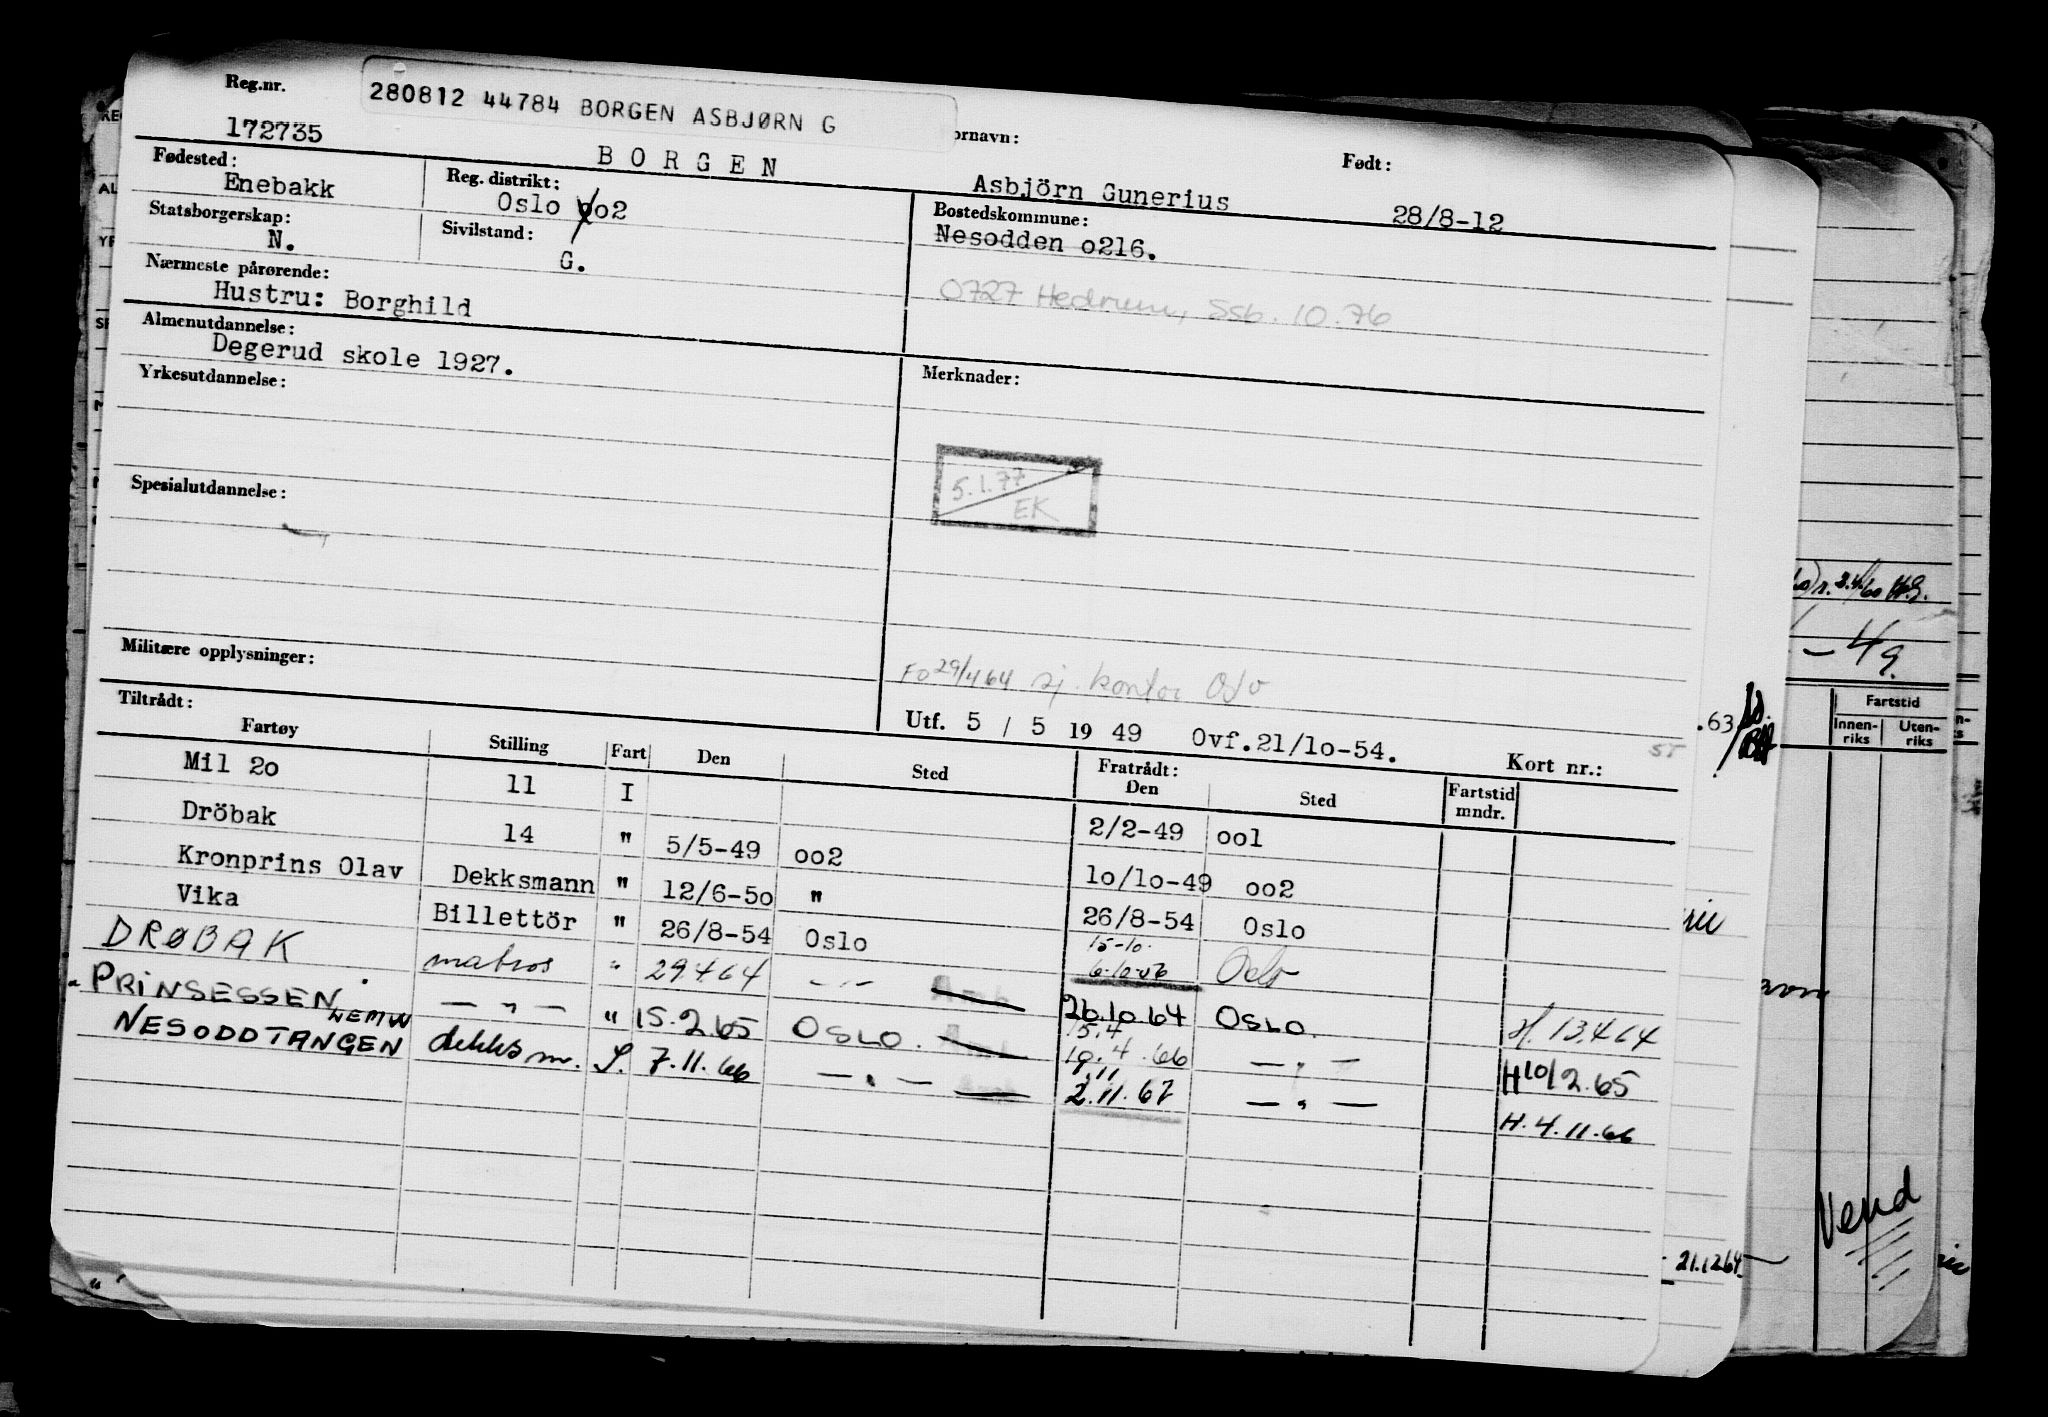 Reg.nr.
280812 44784 BORGEN ASBJØRN G
172735
BORGEN
ornavn:
Asbjörn Gunerius
Født:
28/8-12
Fødested:
Enebakk
Reg. distrikt:
Oslo oo2
Statsborgerskap:
N.
Sivilstand:
G.
Bostedskommune:
Nesodden o216.
0727 Hedrum, Ssb. 10.76
Nærmeste pårørende:
Hustru: Borghild
Almenutdannelse:
Degerud skole 1927.
Yrkesutdannelse:
Merknader:
5.1.77
EK
Spesialutdannelse:
Militære opplysninger:
FO 29/4 64 sj. kontor Oslo
Utf. 5 / 5 19 49 Ovf.21/1o-54. Kort nr.:
Tiltrådt:
Fartøy Stilling Fart Den Sted Fratrådt: Den Sted Fartstid mndr.
Mil 2o 11 I 2/2-49 oo1
Dröbak 14 " 5/5-49 oo2 1o/1o-49 oo2
Kronprins Olav Dekksmann " 12/6-5o " 26/8-54 Oslo
Vika Billettör " 26/8-54 Oslo 15-10.
DRØBAK matros " 29.4.64 — " — 26.10.64 OSLO. H. 13.4.64
PRINSESSEN — " — " 15.2.65 OSLO. 15.4
19.4.66 — " — H10/2.65
NESODDTANGEN dekksm. S. 7.11.66 — " — 9.11
2.11.67 — " — H. 4.11.66
.63
Fartstid
Innen-
riks
Uten-
riks
- 49.
21.12.64
Vend